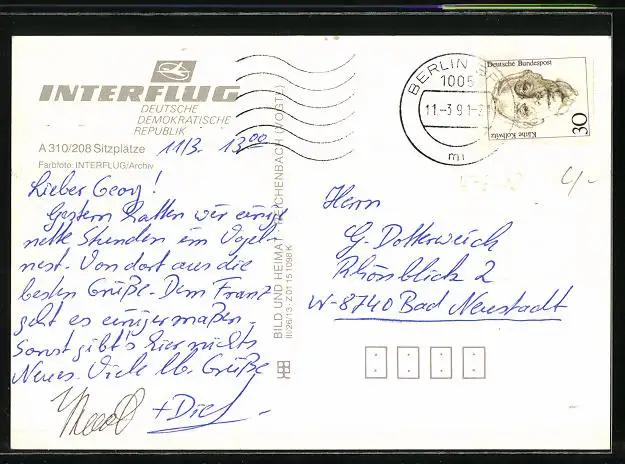 INTERFLUG
DEUTSCHE
DEMOKRATISCHE
REPUBLIK
A 310/208 Sitzplätze
Farbfoto: INTERFLUG/Archiv
11/3. 13 00
Lieber Georg!
Gestern hatten wir einige
nette Stunden im Vogel-
nest. Von dort aus die
besten Grüße. Dem Franz
geht es einigermaßen.
Sonst gibt's hier nichts
Neues. Viele lb. Grüße
BILD UND HEIMAT REICHENBACH (VOGTL)
III/26/13 - Z 01 15 1098 K
BERLIN
1005
11.-3.91
mi
Deutsche Bundespost
Käthe Kollwitz
30
4,-
Herrn
G. Dotterweich
Rhönblick 2
W-8740 Bad Neustadt